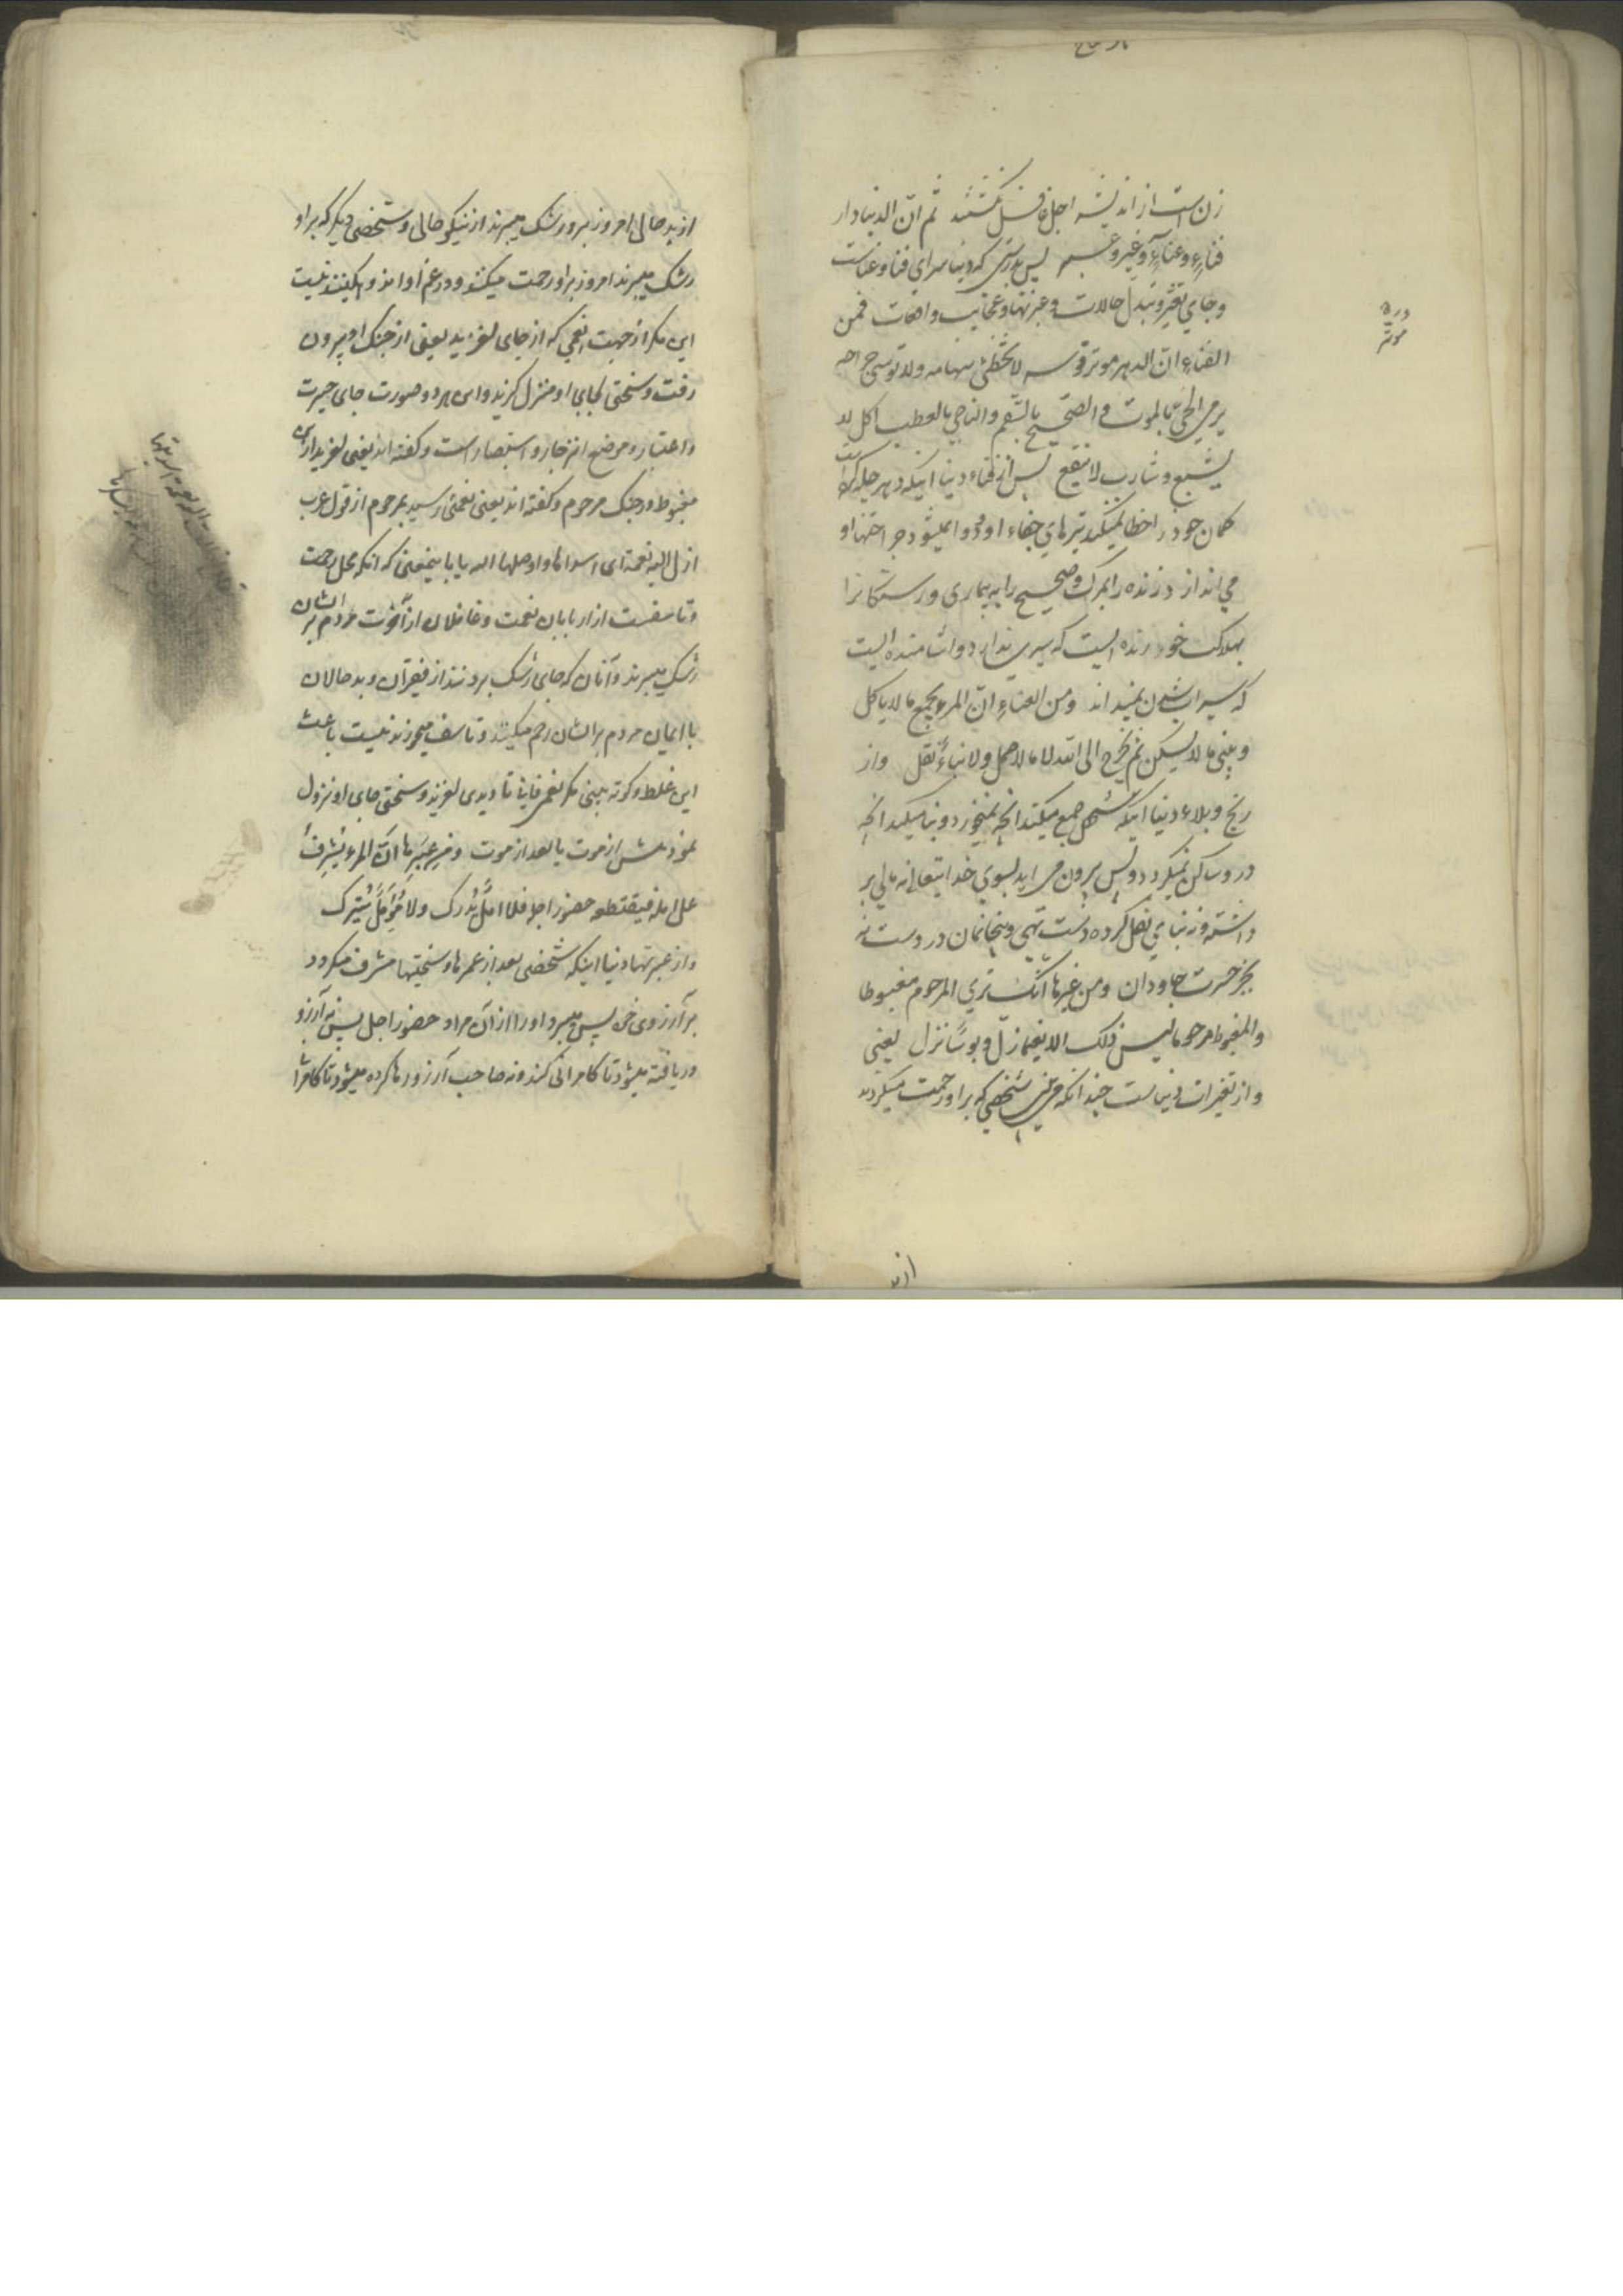 زن است از اندیشه اجل غافل گشتند ثم ان الدنیا دار
فناءٍ وعناءٍ وغیر وعبر پس بدرستی که دنیا سرای فنا و عناست
و جای تغیر و تبدل حالات و عبرتها و عجایب و افات فمن
الفناء ان الدهر موتر قوسه لا تخطئ سهامه ولا توسی جراحه
یرمی الحی بالموت و الصحیح بالسقم والناجی بالعطب اکل لا
یشبع وشارب لا ینقع پس از فناء دنیا اینکه دهر چله کرده است
کمان خود را خطا نمیکند تیرهای جفاء او و دوا نمیشود جراحتها او
می اندازد زنده را بمرگ و صحیح را به بیماری و رستگانرا
بهلاکت خورنده ایست که سیری ندارد و اشامنده ایست
که سیراب شدن نمیداند ومن العناء ان المرء یجمع ما لا یاکل
ویبنی ما لا یسکن ثم یخرج الی الله لا مالا حمل ولا بناءً نقل واز
رنج و بلاء دنیا اینکه شخص جمع میکند انچه نمیخورد و بنا میکند انچه
در و ساکن نمیگردد و پس بیرون می اید بسوی خدایتعالی نه مالی بر
داشته و نه بنایی نقل کرده دست تهی و بیخانمان در دست نه
بجز حسرت جاودان ومن غیرها انک تری المرحوم مغبوطا
والمغبوط مرحوما لیس ذلک الا نعیما زل و بوسًا نزل یعنی
و از تغیرات دنیاست چندانکه می بینی شخصی که بر او رحمت میکردند
از بد
دره
موتر
از بد حالی امروز برو رشک میبرند از نیکو حالی و شخصی دیگر که بر او
رشک میبرند امروز بر او رحمت میکنند و در غم او اندوهگینند نیست
این مکر از جهت نعمی که از جای لغزید یعنی از چنگ او بیرون
رفت و سختی بجای او منزل گزید و این هر دو صورت جای حیرت
و اعتبار و موضع انزجار و استبصار است و گفته اند یعنی لغزید از
مغبوط در چنگ مرحوم و گفته اند یعنی نعمتی رسید بمرحوم از قول عرب
ازل الیه نعمة ای اسداها و اوصلها الیه یا باینمعنی که انکه محل رحمت
و تاسفست از اربابان نعمت و غافلان از آخرت مردم بر ایشان
رشک میبرند و آنان که جای رشک بردنند از فقیران و بد حالان
با ایمان مردم بر ایشان رحم میکنند و تاسف میخورند نیست باعث
این غلط و کوته بینی مگر نعیم فانی تا دیدی لغزید و سختی جای او نزول
نمود پیش از موت یا بعد از موت ومن عبرها ان المرء یشرف
علی امله فیقتطعه حضور اجله فلا املٌ یدرک ولا مؤملٌ یترک
و از عبرتهاء دنیا اینکه شخصی بعد از عمرها و سختیها مشرف میگردد
بر آرزوی خود پس میبرد او را از آن مراد حضور اجل پس نه آرزو
دریافته میشود تا کامرانی کند و نه صاحب آرزو رها کرده میشود تا کامرا